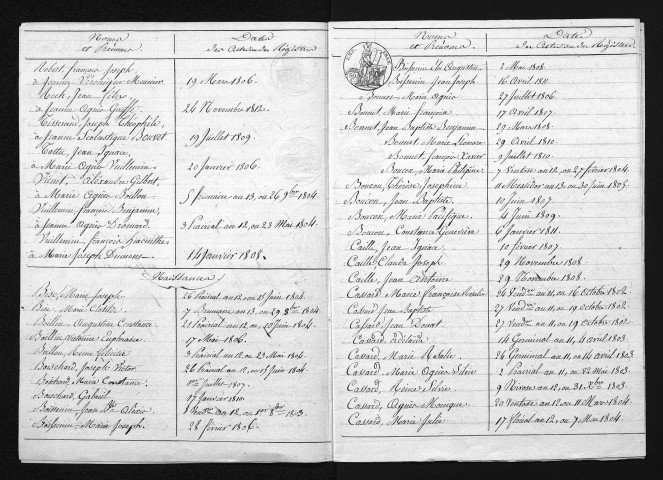 Noms et Prénoms
Dates des Actes ou des Registres
Robert, françois Joseph
à Jeanne Véronique Meunier 19 Mars 1806.
Roch, Jean
à Jeanne Agnès 24 Novembre 1812.
Tisserand, Joseph Théophile,
à Jeanne Scolastique Bouvet 19 Juillet 1809.
Tatte, Jean Ignace,
à Marie Agnès Vuillemin 20 Janvier 1806.
Alexandre Gilbert,
à Marie Agnès Boillon 5 frimaire an 13, ou 26 9bre 1804
Vuillemin, françois Benjamin,
à Jeanne Agnès Drouard 3 prairial an 12, ou 23 Mai 1804.
Vuillemin, françois hyacinthe,
à Marie Joseph 14 Janvier 1808.
Naissances
Marie Joseph 26 prairial an 12 ou 15 Juin 1804.
Marie Clotilde 7 Brumaire an 13, ou 29 8bre 1804
Boillon, Augustine Constance 21 prairial an 12, ou 10 Juin 1804
Boillon, Victoire Euphrasie 17 Mai 1806.
Boillon, Felicité 3 prairial an 12, ou 23 Mai 1804.
Boischard, Joseph Victor 26 prairial an 12, ou 15 Juin 1804
Marie Constance 1er Juillet 1807.
Boischard, Gabriel 17 Janvier 1810.
Boissenin Jean Olivier 8 Vendre an 12, ou 1er 8bre 1803.
Boissenin Marie Joseph 28 février 1806.
Noms et Prénoms
Dates des Actes ou des Registres
Boissenin Augustin 2 Mai 1808
Boissenin Jean Joseph 16 Avril 1811.
Bonnet Marie Agnès 27 Juillet 1806.
Bonnet, Marie françoise 17 Avril 1807.
Bonnet, Jean Baptiste Benjamin 29 Mars 1808.
Bonnet Marie Léonore 29 Avril 1810.
Bonnet, françois Xavier 9 Juillet 1810.
Boucon, Marie Philipine 7 Ventose an 12, ou 27 février 1804.
Boucon, Thérèse Josephine 11 Messidor an 13 ou 30 Juin 1805
Boucon, Jean Baptiste 10 Juin 1807.
Boucon, Marie Pacifique 4 Juin 1809.
Boucon, Constance Geneviève 6 Janvier 1811.
Caille, Jean Ignace 10 février 1807.
Caille, Claude Joseph 29 Novembre 1808.
Caille, Jean Antoine 29 Novembre 1808.
Cassard Marie Françoise Rosalie 24 Vendre an 11, ou 16 Octobre 1802
Cassard Jean Baptiste 27 Vendre an 11, ou 19 Octobre 1802
Cassard, Jean Donat 27 Vendre an 11, ou 19 Octobre 1802.
Cassard, Adelaïde 14 Germinal an 11, ou 4 avril 1803
Cassard, Marie Rosalie 24 Germinal an 11, ou 14 avril 1803
Cassard, Marie Agnès Silvie 2 prairial an 11, ou 22 Mai 1803.
Cassard, Reine Silvie 9 Nivose an 12, ou 31 Xbre 1803.
Cassard, Agnès Monique 20 Ventose an 12, ou 11 Mars 1804.
Cassard, Marie Julie 17 floréal an 12, ou 7 Mai 1804.